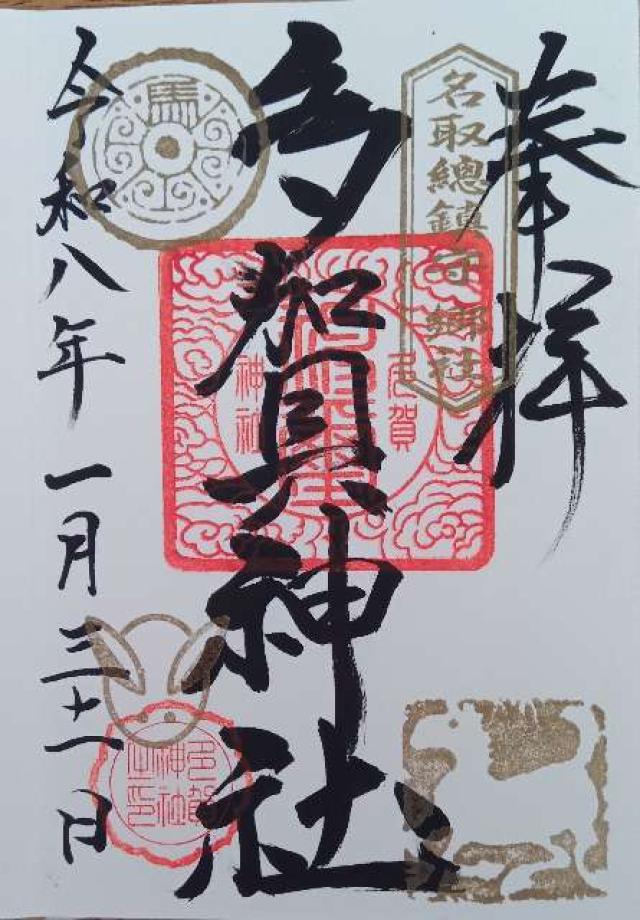 奉拝
名取總鎮守 郷社
多賀神社
多賀
神社
馬
令和八年一月三十一日
多賀
神社
之印